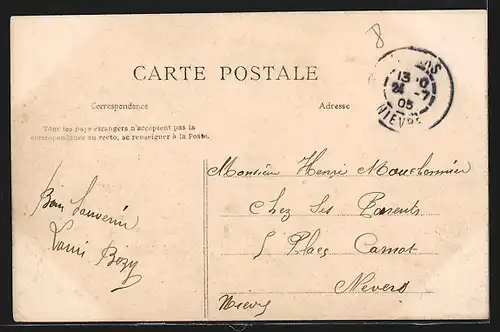 8
CARTE POSTALE
Correspondance
Adresse
Tous les pays étrangers n'acceptent pas la
correspondance au recto, se renseigner à la Poste.
13
24 -7
05
NIEVRE
Bon Souvenir
Louis
Monsieur Henri
Chez Ses Parents
5 Place Carnot
Nevers
Nièvre